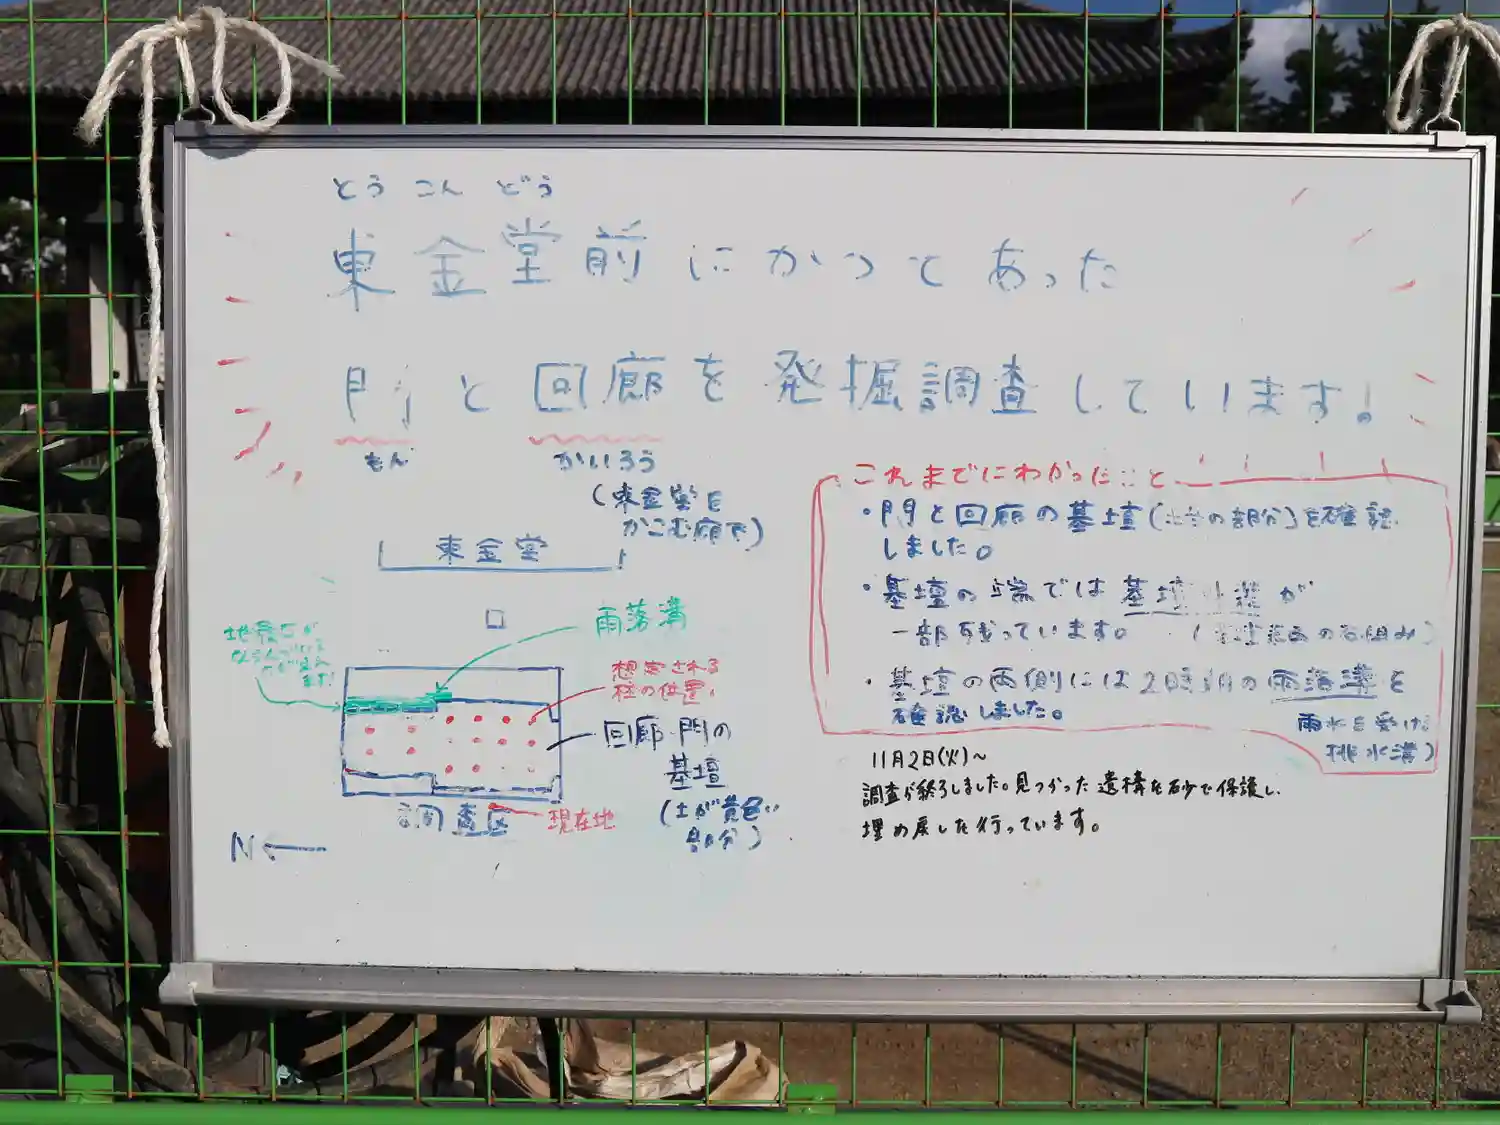 とう こん どう
東金堂前にかつてあった
門と回廊を発掘調査しています!
もん かいろう
(東金堂を
かこむ廊下)
東金堂
雨落溝
地震石が
ます!
想定される
柱の位置
回廊・門の
基壇
(土が黄色い
部分)
調査区
現在地
N
これまでにわかったこと
・門と回廊の基壇(土台の部分)を確認
しました。
・基壇の端では基壇外装が
一部残っています。(基壇表面の石組み)
・基壇の両側には2時期の雨落溝を
確認しました。
雨水を受ける
排水溝)
11月2日(火)~
調査が終了しました。見つかった遺構を砂で保護し、
埋め戻した行っています。